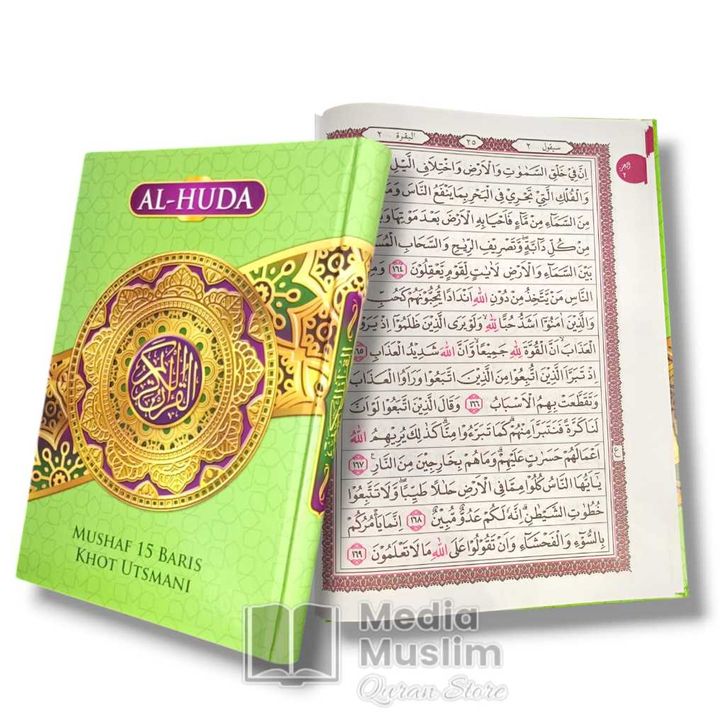 AL-HUDA
القرآن الكريم
MUSHAF 15 BARIS
KHOT UTSMANI
البقرة ٢
٢٥
سيقول ٢
اِنَّ فِيْ خَلْقِ السَّمٰوٰتِ وَالْاَرْضِ وَاخْتِلَافِ الَّيْلِ
وَالْفُلْكِ الَّتِيْ تَجْرِيْ فِى الْبَحْرِ بِمَا يَنْفَعُ النَّاسَ
مِنَ السَّمَاۤءِ مِنْ مَّاۤءٍ فَاَحْيَا بِهِ الْاَرْضَ بَعْدَ مَوْتِهَا
مِنْ كُلِّ دَاۤبَّةٍ ۖ وَّتَصْرِيْفِ الرِّيٰحِ وَالسَّحَابِ
بَيْنَ السَّمَاۤءِ وَالْاَرْضِ لَاٰيٰتٍ لِّقَوْمٍ يَّعْقِلُوْنَ ١٦٤
النَّاسِ مَنْ يَّتَّخِذُ مِنْ دُوْنِ اللّٰهِ اَنْدَادًا يُّحِبُّوْنَهُمْ كَحُبِّ
وَالَّذِيْنَ اٰمَنُوْٓا اَشَدُّ حُبًّا لِّلّٰهِ ۙ وَلَوْ يَرَى الَّذِيْنَ ظَلَمُوْٓا اِذْ
الْعَذَابَۙ اَنَّ الْقُوَّةَ لِلّٰهِ جَمِيْعًا وَّاَنَّ اللّٰهَ شَدِيْدُ الْعَذَابِ
اِذْ تَبَرَّاَ الَّذِيْنَ اتُّبِعُوْا مِنَ الَّذِيْنَ اتَّبَعُوْا وَرَاَوُا الْعَذَابَ
وَتَقَطَّعَتْ بِهِمُ الْاَسْبَابُ ١٦٦ وَقَالَ الَّذِيْنَ اتَّبَعُوْا لَوْ اَنَّ
لَنَا كَرَّةً فَنَتَبَرَّاَ مِنْهُمْ كَمَا تَبَرَّءُوْا مِنَّا ۗ كَذٰلِكَ يُرِيْهِمُ اللّٰهُ
اَعْمَالَهُمْ حَسَرٰتٍ عَلَيْهِمْ ۗ وَمَا هُمْ بِخَارِجِيْنَ مِنَ النَّارِ ١٦٧
يٰٓاَيُّهَا النَّاسُ كُلُوْا مِمَّا فِى الْاَرْضِ حَلٰلًا طَيِّبًا ۖ وَّلَا تَتَّبِعُوْا
خُطُوٰتِ الشَّيْطٰنِۗ اِنَّهٗ لَكُمْ عَدُوٌّ مُّبِيْنٌ ١٦٨ اِنَّمَا يَأْمُرُكُمْ
بِالسُّوْۤءِ وَالْفَحْشَاۤءِ وَاَنْ تَقُوْلُوْا عَلَى اللّٰهِ مَا لَا تَعْلَمُوْنَ ١٦٩
Media
Muslim
Quran Store